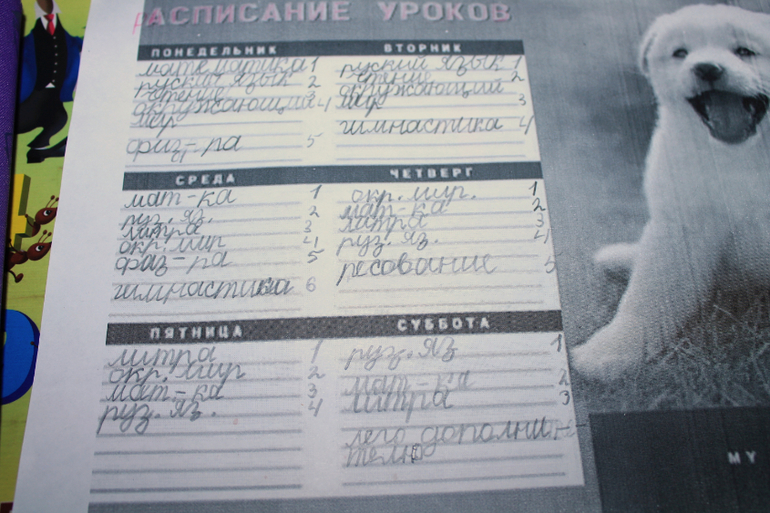 РАСПИСАНИЕ УРОКОВ
ПОНЕДЕЛЬНИК
математика 1
руский язык 2
чтение 3
окружающий 4
мир
физ-ра 5
ВТОРНИК
руский язык 1
чтение 2
окружающий
мир 3
гимнастика 4
СРЕДА
мат-ка 1
руз. яз. 2
литра 3
окр. мир 4
физ-ра 5
гимнастика 6
ЧЕТВЕРГ
окр. мир. 1
мат-ка 2
литра 3
руз. яз. 4
ресование 5
ПЯТНИЦА
литра 1
окр. мир 2
мат-ка 3
руз. яз. 4
СУББОТА
руз. яз 1
мат-ка 2
литра 3
лего дополни
MY